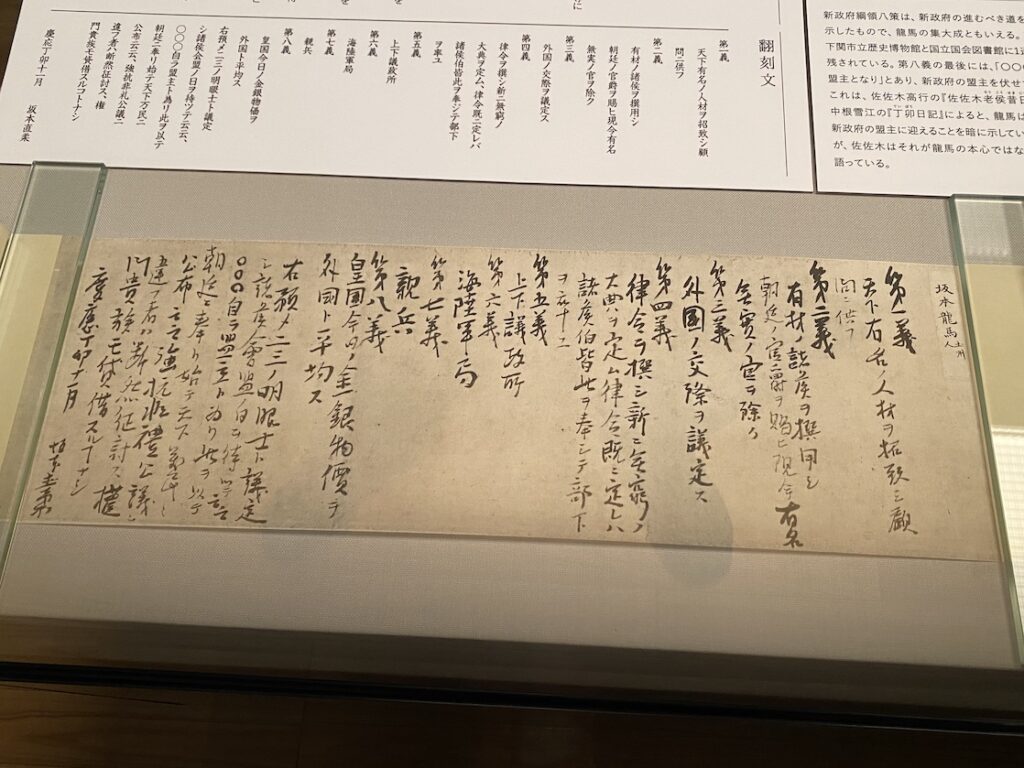 新政府綱領八策は、新政府の進むべき道を
示したもので、龍馬の集大成ともいえる。
下関市立歴史博物館と国立国会図書館に1
残されている。第八義の最後には、「〇〇
盟主となり」とあり、新政府の盟主を伏せ
これは、佐佐木高行の『佐佐木老侯昔日
中根雪江の『丁卯日記』によると、龍馬は
新政府の盟主に迎えることを暗に示してい
が、佐佐木はそれが龍馬の本心ではな
語っている。
翻刻文
第一義
天下有名ノ人材ヲ招致シ顧
問ニ供フ
第二義
有材ノ諸侯ヲ撰用シ
朝廷ノ官爵ヲ賜ヒ現今有名
無実ノ官ヲ除ク
第三義
外国ノ交際ヲ議定ス
第四義
律令ヲ撰シ新ニ無窮ノ
大典ヲ定ム、律令既ニ定レバ
諸侯伯皆此ヲ奉シテ部下
ヲ率ユ
第五義
上下議政所
第六義
海陸軍局
第七義
親兵
第八義
皇国今日ノ金銀物価ヲ
外国ト平均ス
右預メ二三ノ明眼士ト議定
シ諸侯会盟ノ日ヲ待ツテ云云、
〇〇〇自ラ盟主ト為リ此ヲ以テ
朝廷ニ奉リ始テ天下万民ニ
公布云云、強抗非礼公議ニ
違フ者ハ断然征討ス、権
門貴族モ貸借スルコトナシ
慶応丁卯十一月 坂本直柔
坂本龍馬 土州人
第一義
天下有名ノ人材ヲ招致シ顧
問ニ供フ
第二義
有材ノ諸侯ヲ撰用シ
朝廷ノ官爵ヲ賜ヒ現今有名
無實ノ官ヲ除ク
第三義
外國ノ交際ヲ議定ス
第四義
律令ヲ撰シ新ニ無窮ノ
大典ヲ定ム律令既ニ定レハ
諸侯伯皆此ヲ奉シテ部下
ヲ率ユ
第五義
上下議政所
第六義
海陸軍局
第七義
親兵
第八義
皇国今日ノ金銀物價ヲ
外國ト平均ス
右預メ二三ノ明眼士ト議定
シ諸侯會盟ノ日ヲ待ツテ云云
〇〇〇自ラ盟主ト為リ此ヲ以テ
朝廷ニ奉リ始テ天下萬民ニ
公布云云強抗非禮公議ニ
違フ者ハ断然征討ス權
門貴族モ貸借スルコトナシ
慶應丁卯十一月 坂本直柔